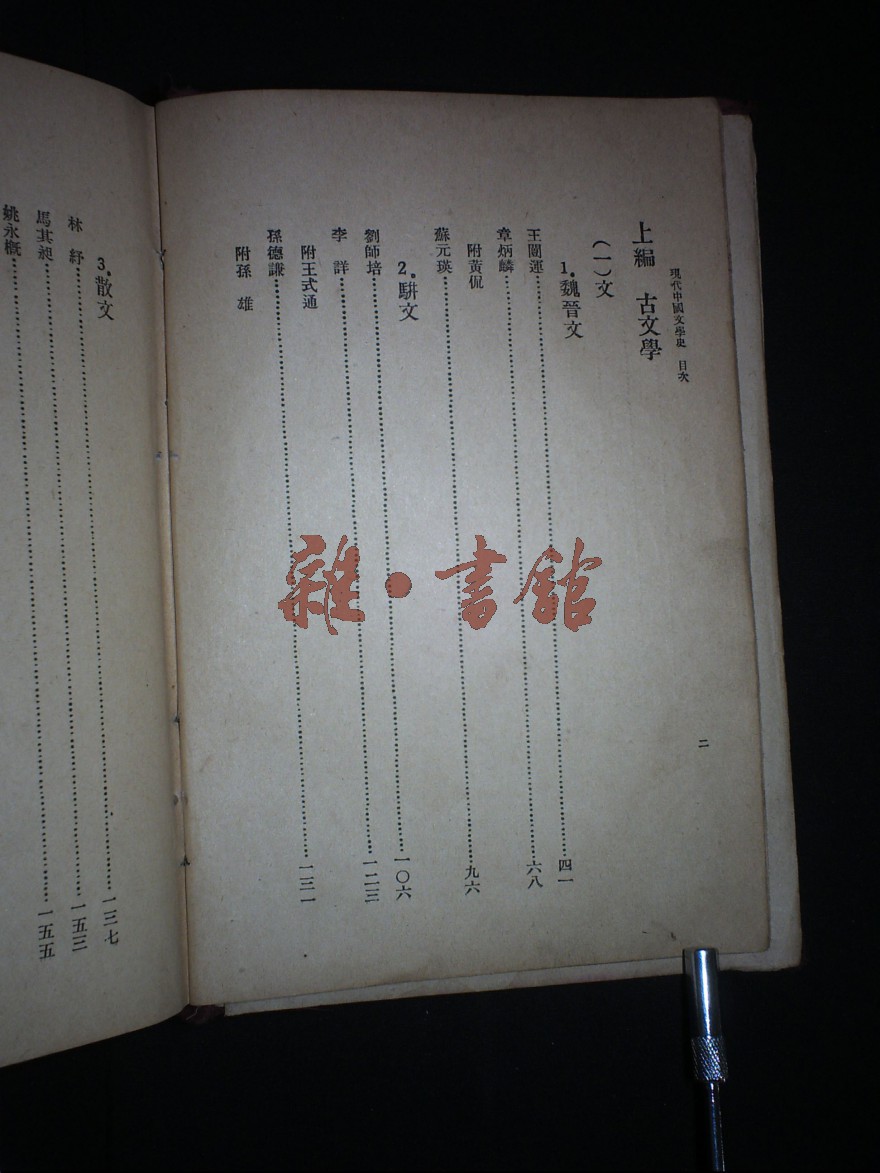 現代中國文學史 目次
上編 古文學
(一)文
1.魏晉文
王闓運……四一
章炳麟……六八
附黃侃
蘇元瑛……九六
2.駢文
劉師培……一〇六
李詳……一二三
附王式通
孫德謙……一三一
附孫雄
二
3.散文
林紓……一三七
馬其昶……一五三
姚永概……一五五
雜·書館